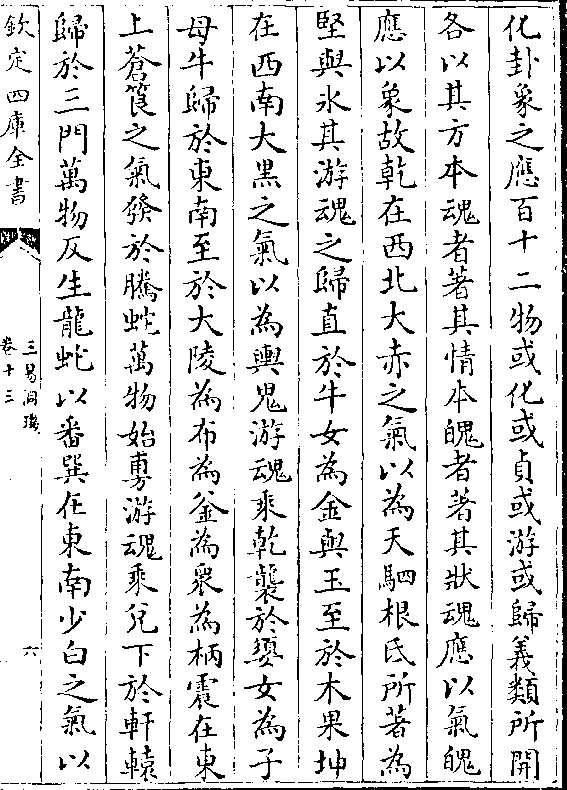 化卦象之應百十二物或化或貞或游或歸義類所開
各以其方本魂者著其情本魄者著其狀魂應以氣魄
應以象故乾在西北大赤之氣以為天駟根氐所著為
堅與氷其游魂之歸直於牛女為金與玉至於木果坤
在西南大黒之氣以為輿鬼游魂乘乾襲於婺女為子
母牛歸於東南至於大陵為布為釜為衆為柄震在東
上蒼筤之氣發於騰蛇萬物始旉游魂乘兊下於軒轅
歸於三門萬物反生龍蛇以番巽在東南少白之氣以
欽定四庫全書
三易洞璣
卷十三
六